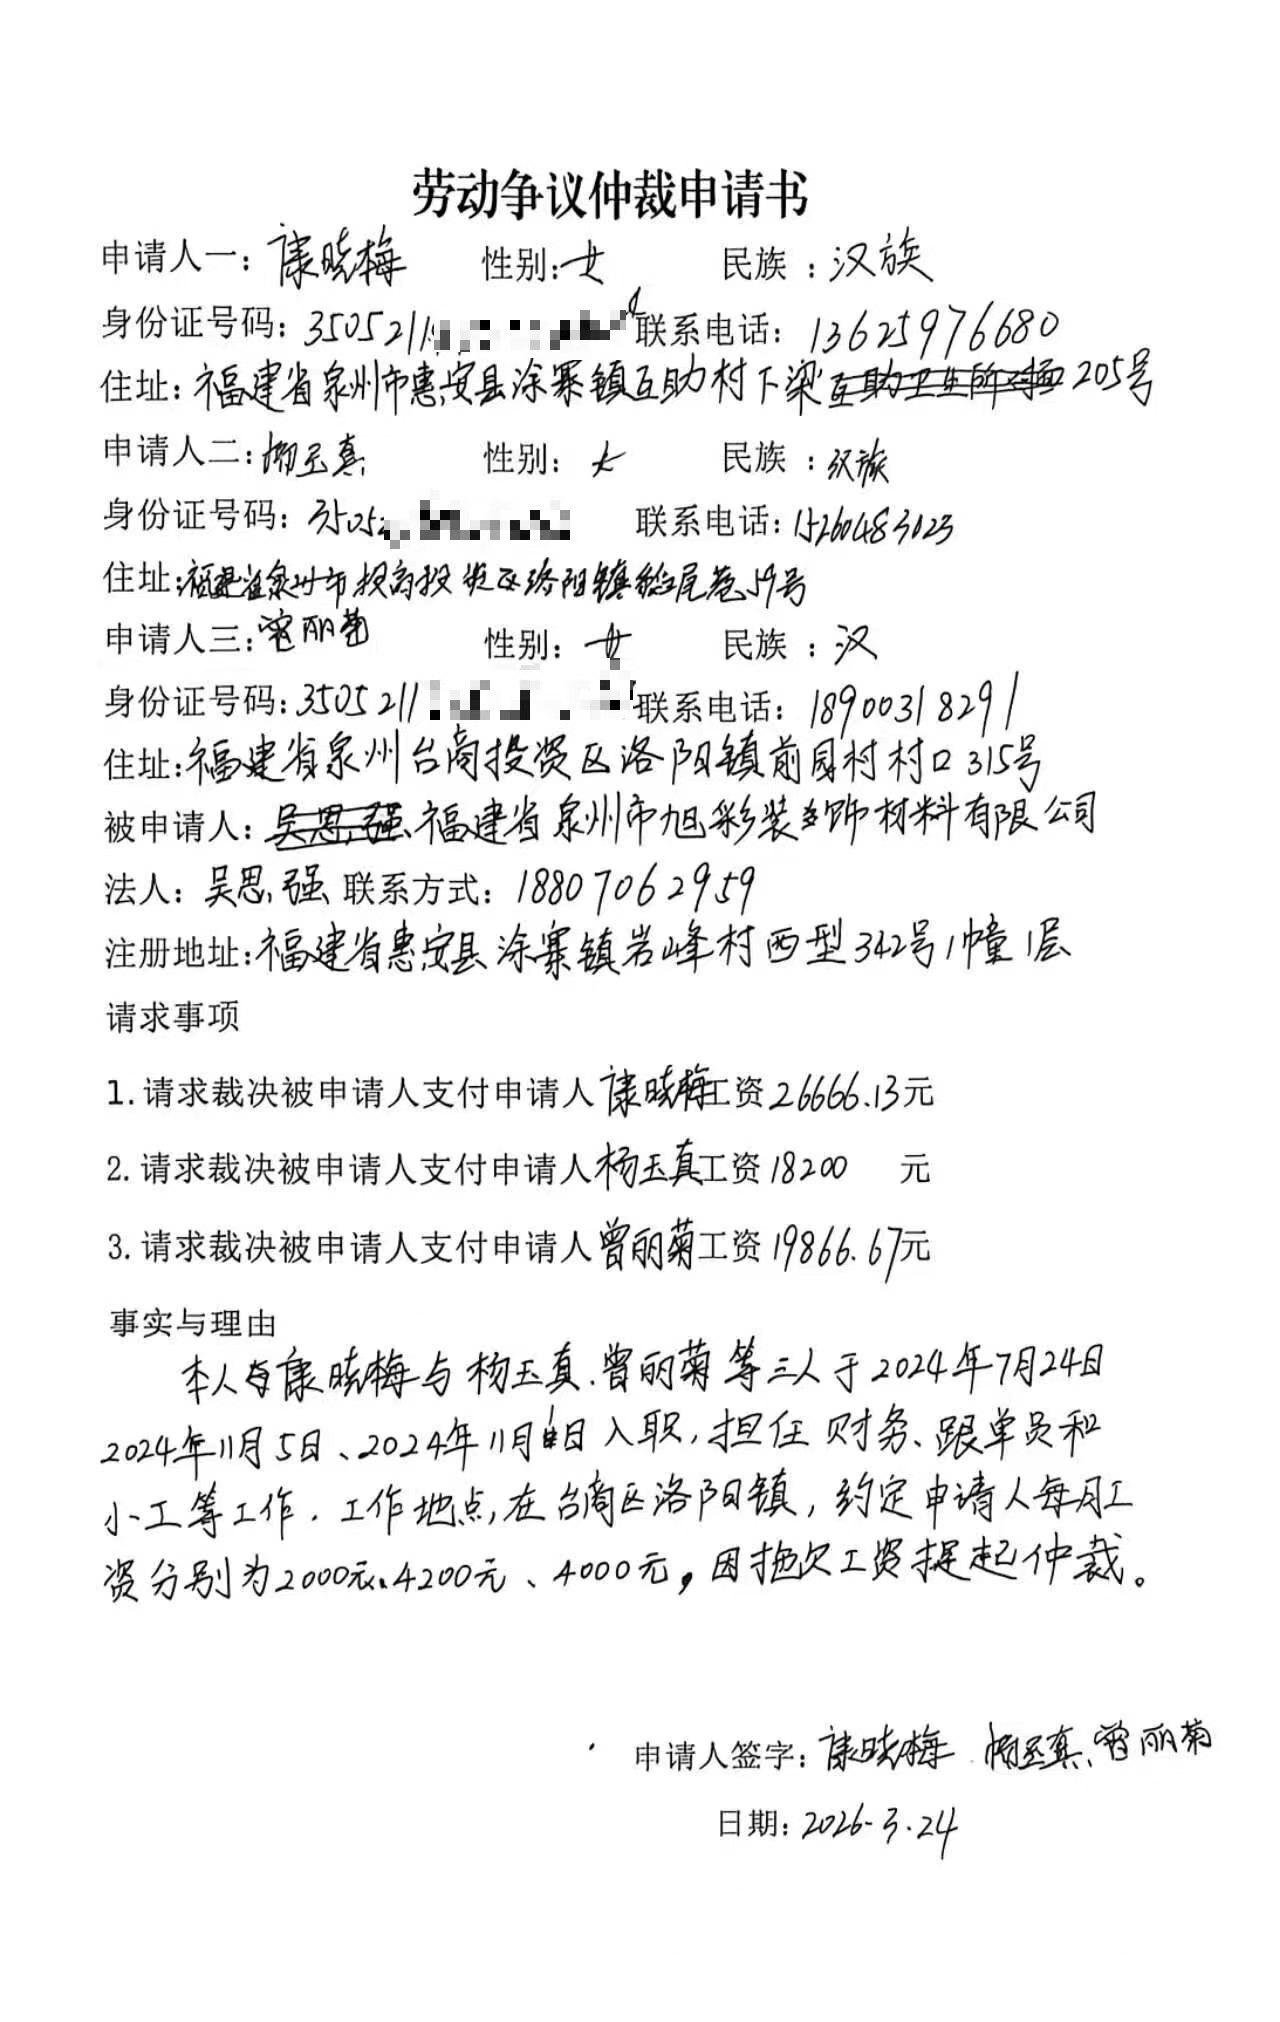 劳动争议仲裁申请书
申请人一：康晓梅 性别：女 民族：汉族
身份证号码：3505211 联系电话：13625976680
住址：福建省泉州市惠安县涂寨镇互助村下梁205号
申请人二：杨玉真 性别：女 民族：汉族
身份证号码：35052 联系电话：15260483023
住址：福建省泉州市投资区洛阳镇尾巷59号
申请人三：曾丽菊 性别：女 民族：汉
身份证号码：3505211 联系电话：18900318291
住址：福建省泉州台商投资区洛阳镇前园村村口315号
被申请人：吴思强福建省泉州市旭彩装饰材料有限公司
法人：吴思强 联系方式：18807062959
注册地址：福建省惠安县涂寨镇岩峰村西型342号1幢1层
请求事项
1.请求裁决被申请人支付申请人康晓梅工资26666.13元
2.请求裁决被申请人支付申请人杨玉真工资18200 元
3.请求裁决被申请人支付申请人曾丽菊工资19866.67元
事实与理由
本人康晓梅与杨玉真、曾丽菊等三人于2024年7月24日
2024年11月5日、2024年11月日入职，担任财务、跟单员和
小工等工作．工作地点，在台商区洛阳镇，约定申请人每月工
资分别为2000元、4200元、4000元，因拖欠工资提起仲裁。
申请人签字：康晓梅 杨玉真、曾丽菊
日期：2026-3.24